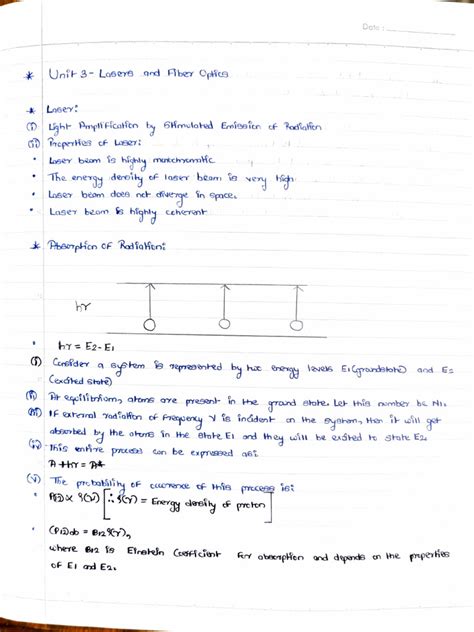 Date:
* Unit 3 - Lasers and Fiber Optics
* Laser:
(i) Light Amplification by Stimulated Emission of Radiation
(ii) Properties of Laser:
• Laser beam is highly monochromatic
• The energy density of laser beam is very high
• Laser beam does not diverge in space.
• Laser beam is highly coherent
* Absorption of Radiation:
hγ
• hγ = E2-E1
(i) Consider a system is represented by two energy levels E1(groundstate) and E2
(excited state)
(ii) At equilibrium, atoms are present in the ground state. Let this number be N1.
(iii) If external radiation of frequency γ is incident on the system, then it will get
absorbed by the atoms in the state E1 and they will be exited to state E2.
(iv) This entire process can be expressed as:
A + hγ = A*
(v) The probability of occurence of this process is:
• P12 ∝ ϱ(γ) [∴ ϱ(γ) = Energy density of proton]
• (P12)ab = B12 ϱ(γ),
where B12 is Einstein Coefficient for absorption and depends on the properties
of E1 and E2.